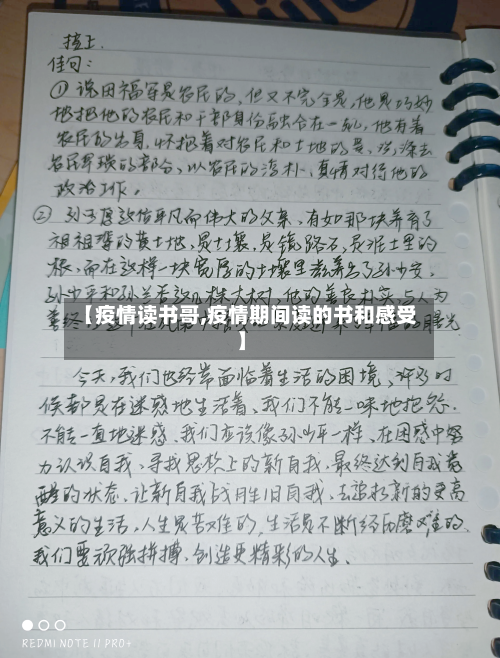 接上.
佳句:
①说田福军是农民的,但又不完全是,他是巧妙
地把他的农民和干部身份融合在一起,他有着
农民的出身,怀揣着对农民和土地的爱,
农民 的部分,以农民的淳朴、真情对待他的
政治工作。
②孙玉厚这位平凡而伟大的父亲,有如那块养育了
祖祖辈辈的黄土地,是土壤,是铺路石,是泥土里的
根,而在这样一块宽厚的土壤里养出了孙少安、
孙少平和孙兰香这几株大树,他的善良朴实,与人为
善
【疫情读书哥,疫情期间读的书和感受
】
今天,我们也经常面临着生活的困境,许多时
候都是在迷惑地生活着,我们不能一味地抱怨.
不能一直地迷惑,我们应该像孙少平一样,在困惑中努
力认识自我,寻找思想上的新自我.最终达到自我觉
醒的状态,让新自我战胜旧自我,去追求新的更高
意义的生活,人生是苦难的,生活是不断经历磨难的,
我们要顽强拼搏,创造更精彩的人生.
REDMI NOTE 11 PRO+